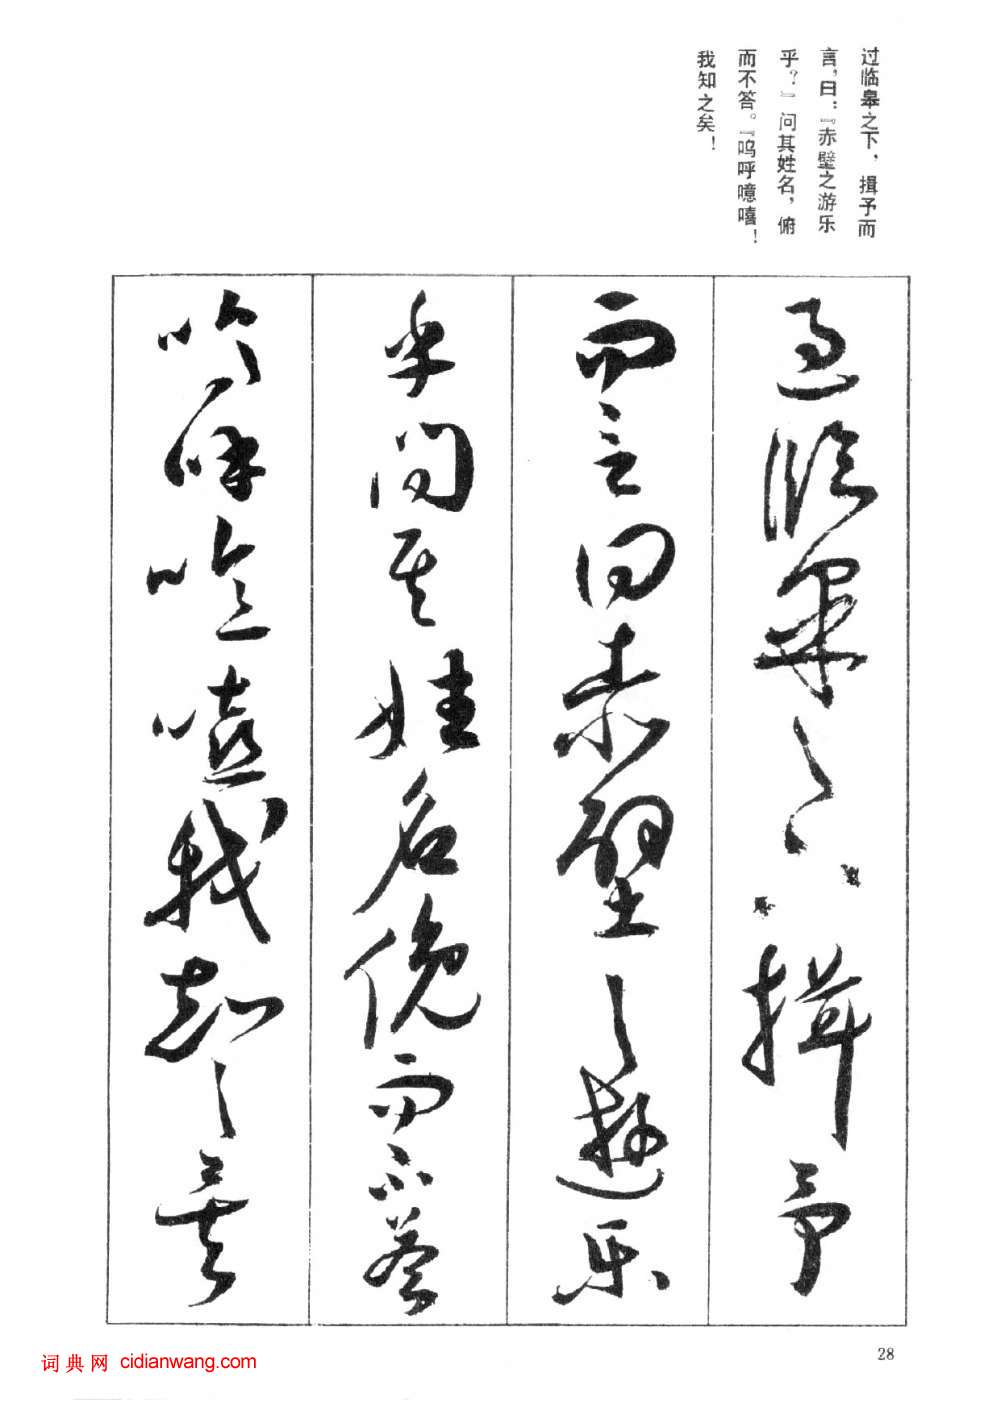 过临皋之下，揖予而
言，曰：『赤壁之游乐
乎？』问其姓名，俯
而不答。『呜呼噫嘻！
我知之矣！
过临皋之下揖予
而言曰赤壁之遊乐
乎问其姓名俛而不答
呜呼噫嘻我知之矣
28
词典网 cidianwang.com